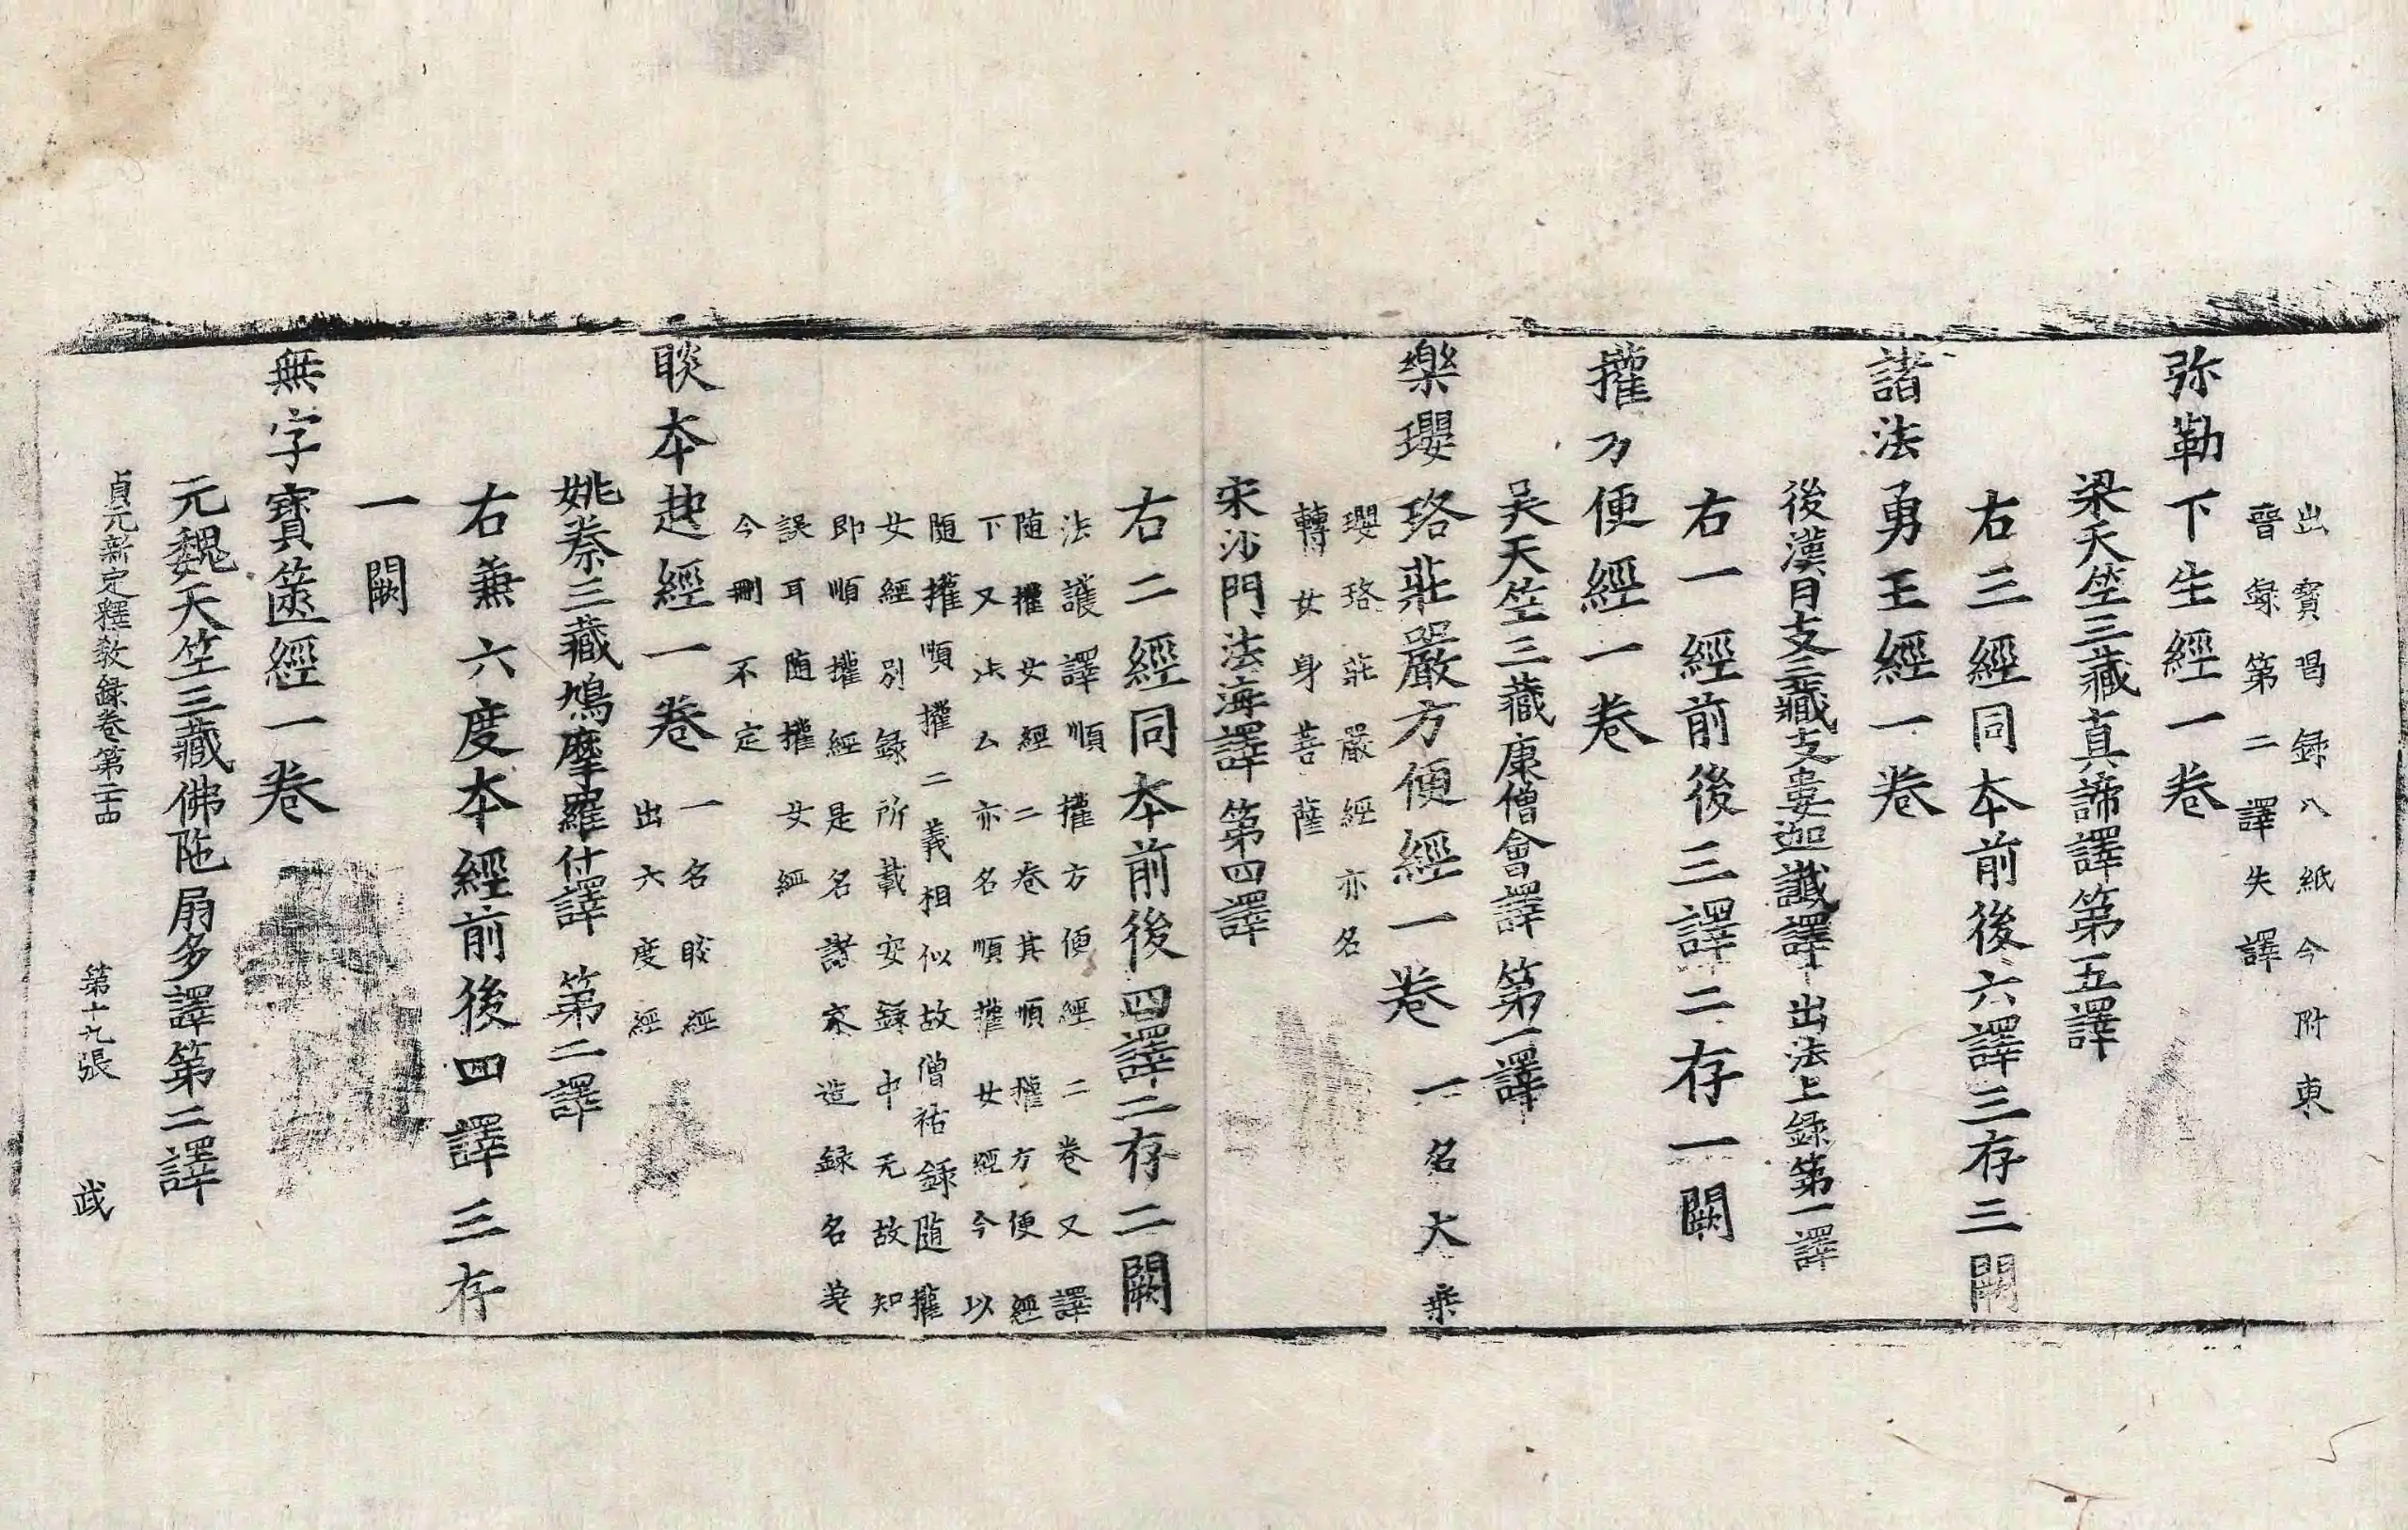 出寶唱録八紙今附東
晉録第二譯失譯
弥勒下生經一卷
梁天竺三藏真諦譯第五譯
右三經同本前後六譯三存三闕
諸法勇王經一卷
後漢月支三藏支婁迦讖譯出法上録第一譯
右一經前後三譯二存一闕
權方便經一卷
吴天竺三藏康僧會譯第一譯
樂瓔珞莊嚴方便經一卷一名大乗
瓔珞莊嚴經亦名
轉女身菩薩
宋沙門法海譯第四譯
右二經同本前後四譯二存二闕
法護譯順權方便經二卷又譯
随權女經二卷其順權方便經
下又注云亦名順權女經今以
随權順權二義相似故僧祐録随權
女經別録所載安録中无故知
即順權經是名諸家造録名差
誤耳随權女經
今刪不定
睒本起經一卷
一名睒經
出六度經
姚秦三藏鳩摩羅什譯第二譯
右兼六度本經前後四譯三存
一闕
無字寶篋經一卷
元魏天竺三藏佛陁扇多譯第二譯
貞元新定釋教録卷第二十四 第十九張 武